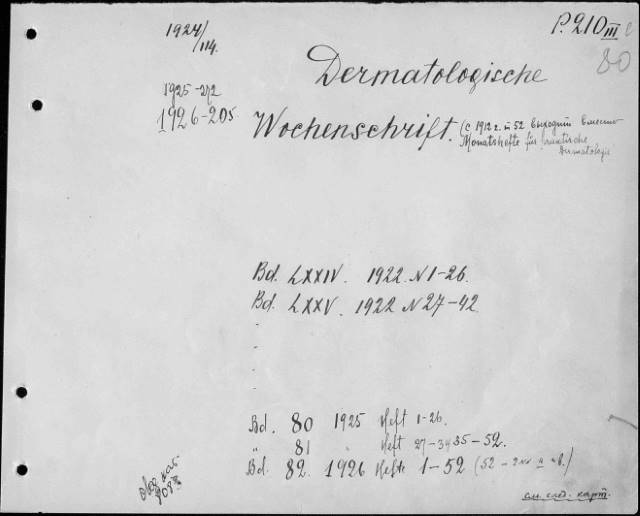 1924/114.
P. 210 III c
80
Dermatologische
1925-212
1926-205
Wochenschrift. (с 1912 г. № 52 выходит вместо
Monatshefte für praktische
Dermatologie
Bd. LXXIV. 1922. N 1-26.
Bd. LXXV. 1922 N 27-42.
Bd. 80 1925 Heft 1-26.
" 81 " Heft 27-3435-52.
Bd. 82. 1926 Hefte 1-52
см. след. карт.